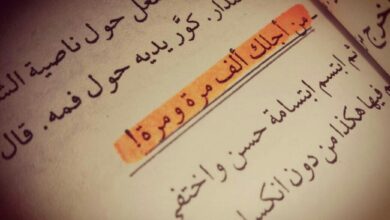 عل حول ناصية
دار. كوَّر يديه حول فمه. قال
- من أجلك ألف مرة ومرة!
ثم ابتسم ابتسامة حسن واختفى
فيها هكذا من دون